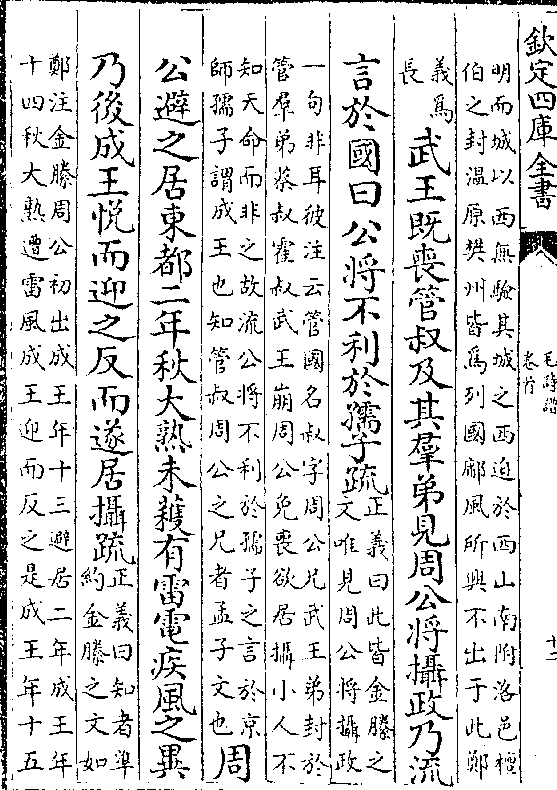 欽定四庫全書
毛詩譜
卷首
十二
明而城以西無驗其城之西迫於西山南附洛邑檀
伯之封溫原樊州皆為列國鄘風所興不出于此鄭
義為
長
武王既喪管叔及其羣弟見周公將攝政乃流
言於國曰公將不利於孺子疏
正義曰此皆金縢之
文唯見周公將攝政
一句非耳彼注云管國名叔字周公兄武王弟封於
管羣弟蔡叔霍叔武王崩周公免喪欲居攝小人不
知天命而非之故流公將不利於孺子之言於京
師孺子謂成王也知管叔周公之兄者孟子文也
周
公避之居東都二年秋大熟未穫有雷電疾風之異
乃後成王悅而迎之反而遂居攝疏
正義曰知者準
約金縢之文如
鄭注金縢周公初出成王年十三避居二年成王年
十四秋大熟遭雷風成王迎而反之是成王年十五